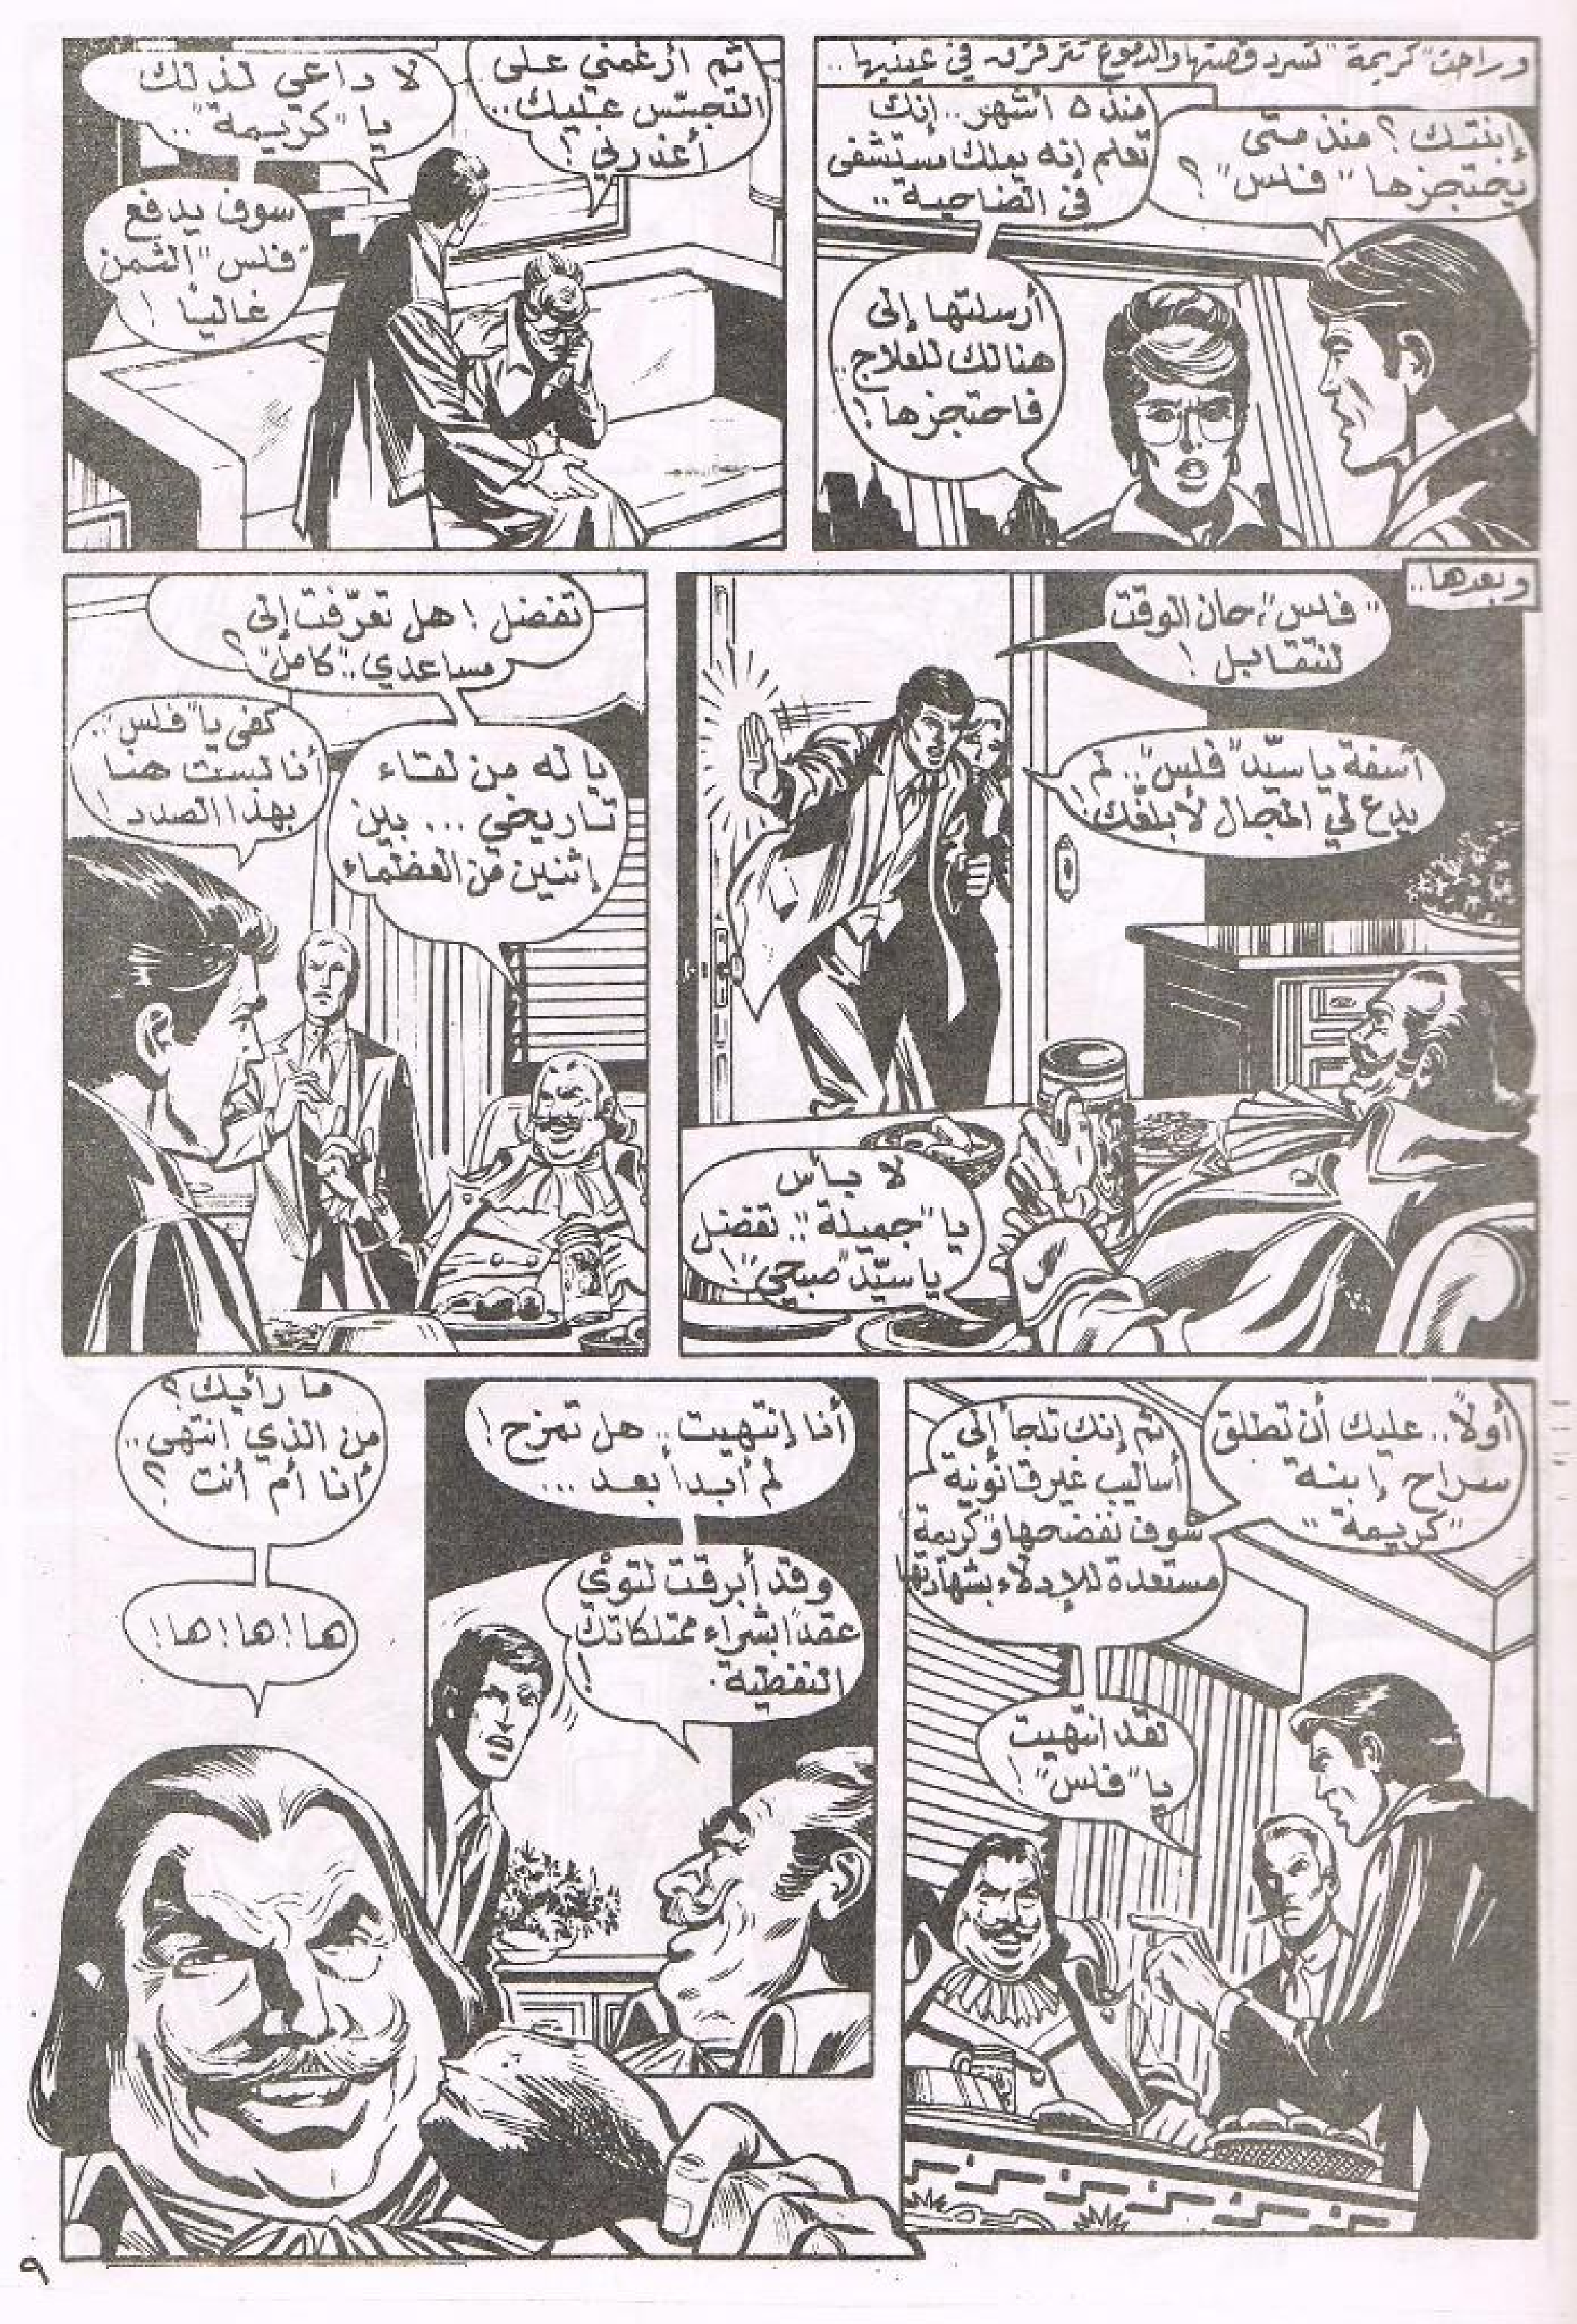 وراحت "كريمة" تسرد قصتها والدموع تترقرق في عينيها..
إبنتك؟ منذ متى
يحتجزها "فلس"؟
منذ ٥ أشهر.. إنك
تعلم إنه يملك مستشفى
في الضاحية..
أرسلتها إلى
هنالك للعلاج..
فاحتجزها!
ثم أرغمني على
التجسّس عليك..
أعذرني!
لا داعي لذلك
يا "كريمة"..
سوف يدفع
"فلس" الثمن
غاليًا!
وبعدها..
"فلس"، حان الوقت
لنتقابل!
آسفة يا سيّد "فلس".. لم
يدع لي المجال لأبلغك!
لا بأس
يا "جميلة".. تفضل
يا سيّد "صبحي"!
تفضل! هل تعرّفت إلى
مساعدي.. "كامل"؟
يا له من لقاء
تاريخي... بين
إثنين من العظماء
كفى يا "فلس"..
أنا لست هنا
بهذا الصدد!
أولًا.. عليك أن تطلق
سراح إبنة
"كريمة"
ثم إنك تلجأ إلى
أساليب غير قانونية
سوف نفضحها و"كريمة"
مستعدة للإدلاء بشهادتها
لقد انتهيت
يا "فلس"!
أنا إنتهيت.. هل تمزح!
لم أبدأ بعد...
وقد أبرقت لتوي
عقدًا بشراء ممتلكاتك
النفطية.!
ما رأيك؟
من الذي انتهى..
أنا أم أنت؟
ها! ها! ها!
٩